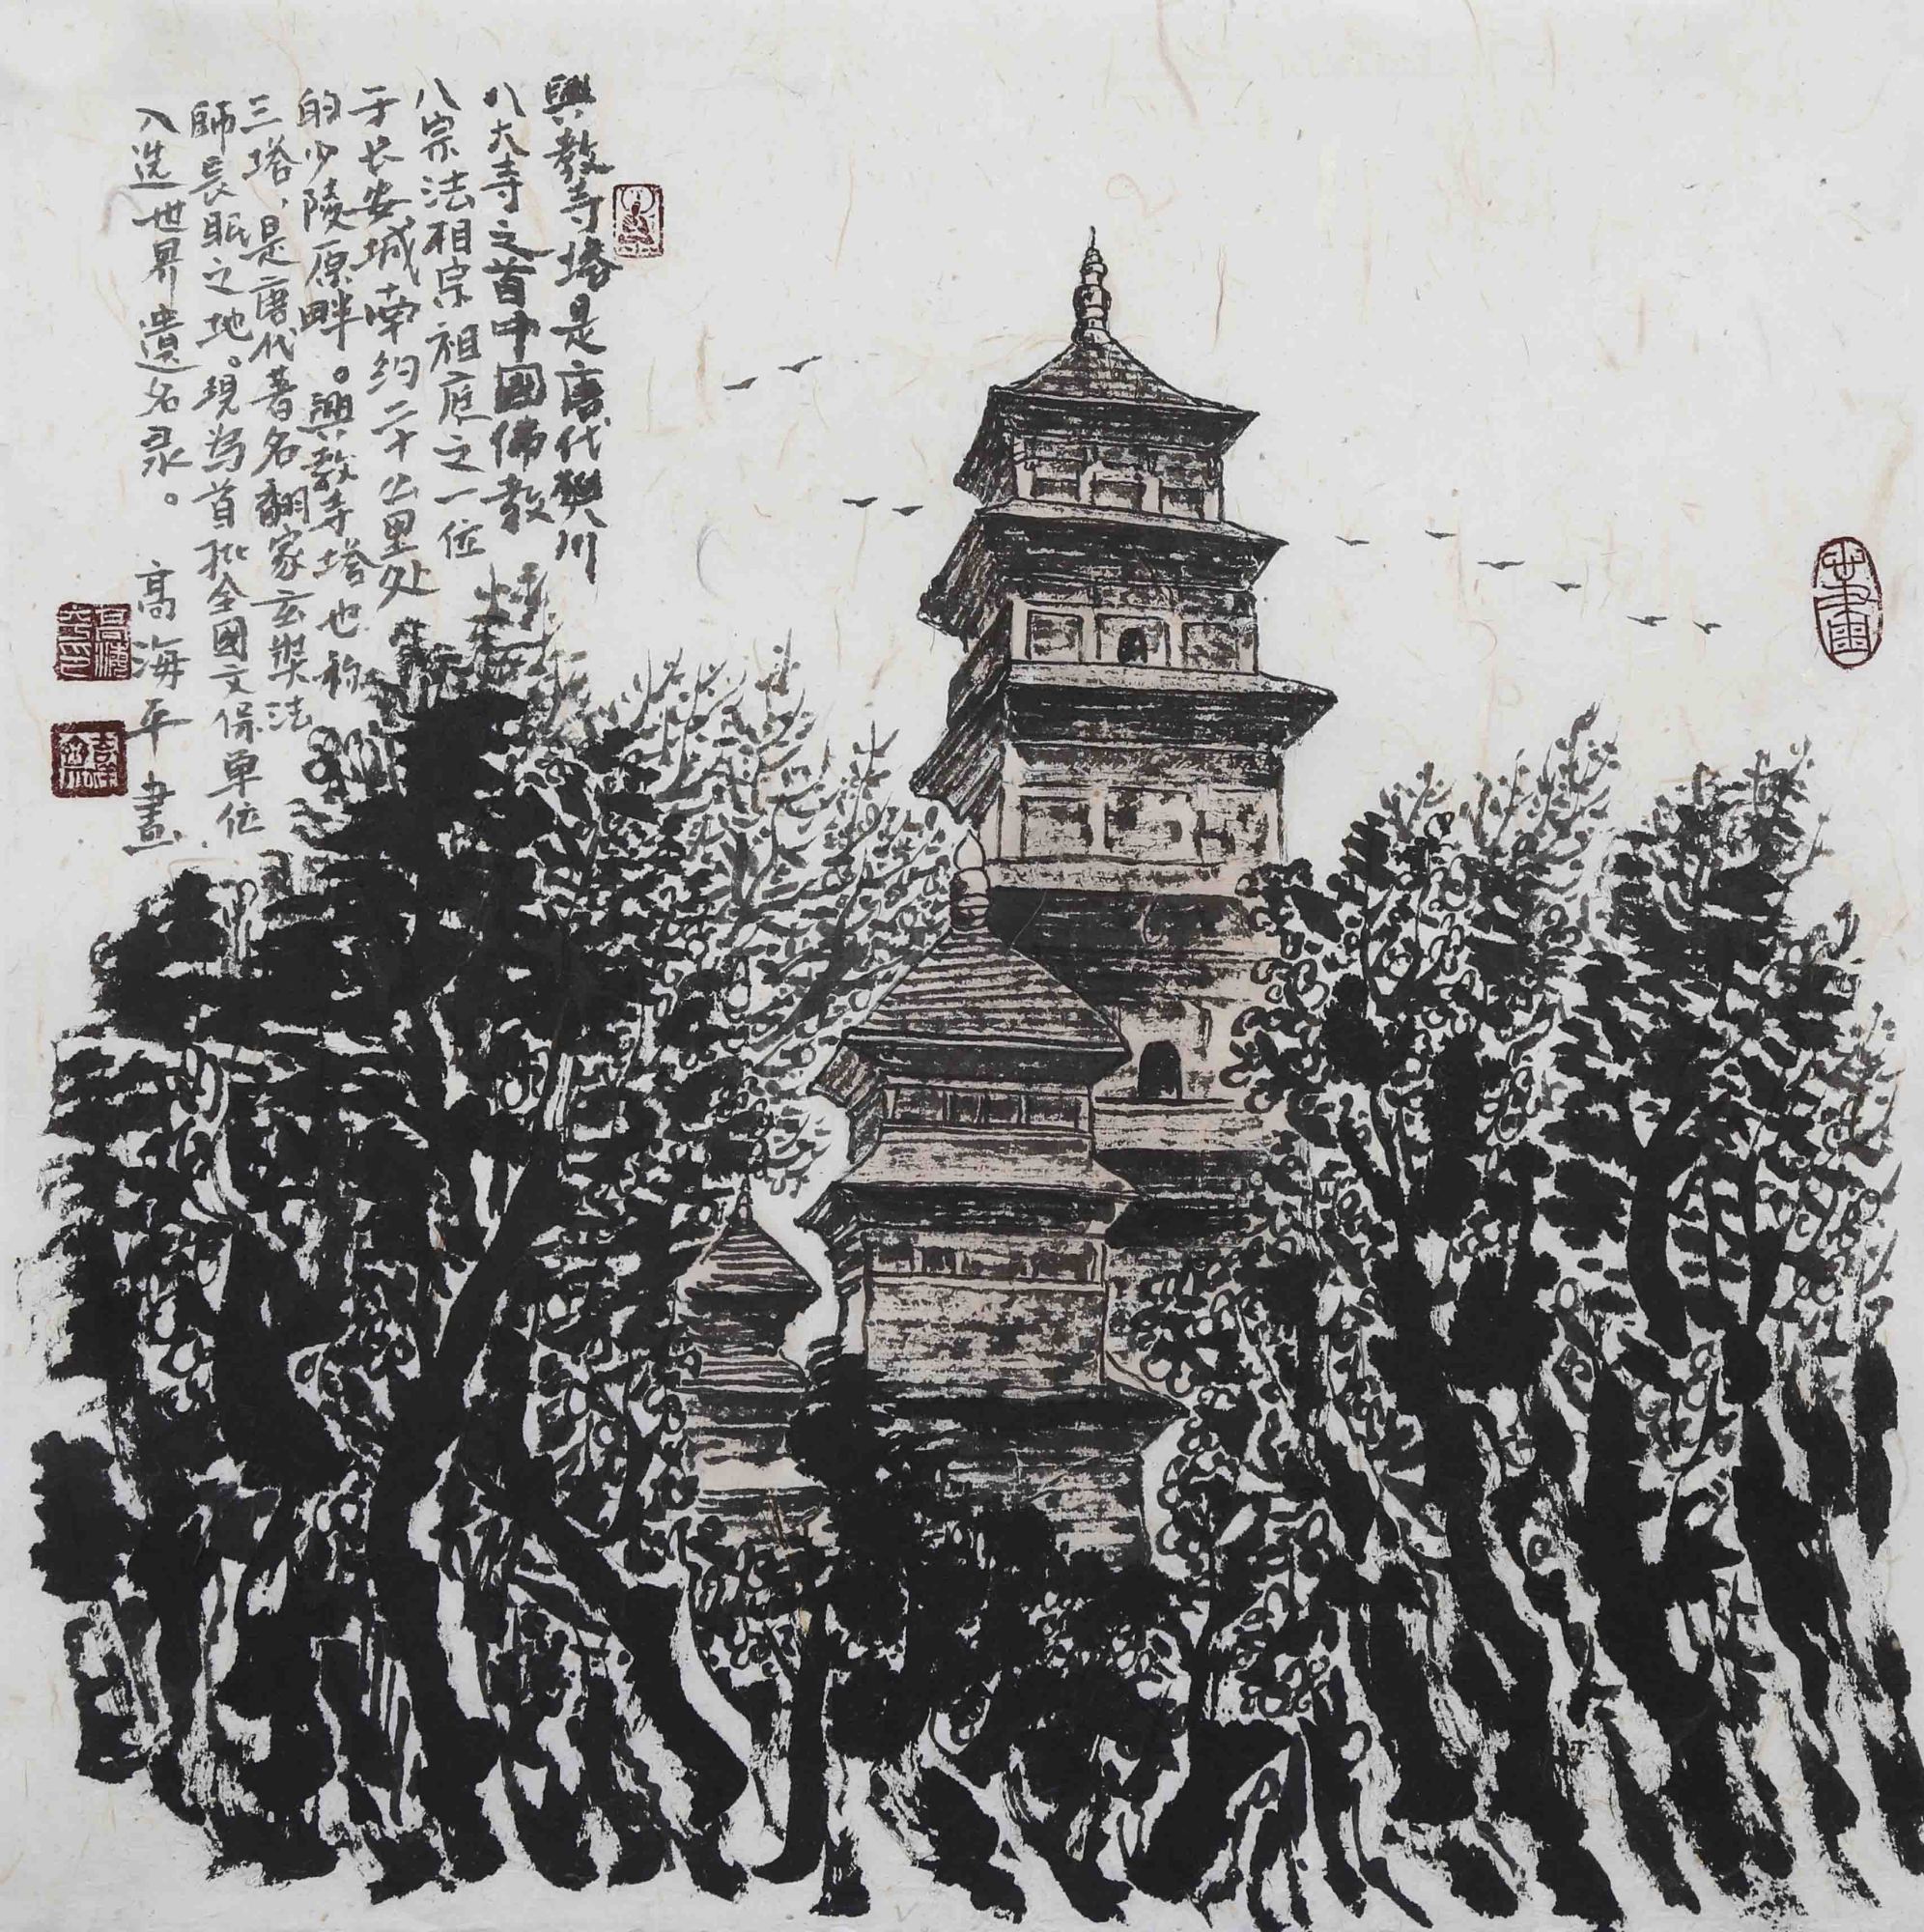 興教寺塔是唐代樊川
八大寺之首中國佛教
八宗法相宗祖庭之一位
于长安城南约二十公里处
的少陵原畔。興教寺塔也称
三塔,是唐代著名翻家玄奘法
師长眠之地。現為首批全國文保单位
入选世界遗名录。 高海平畫